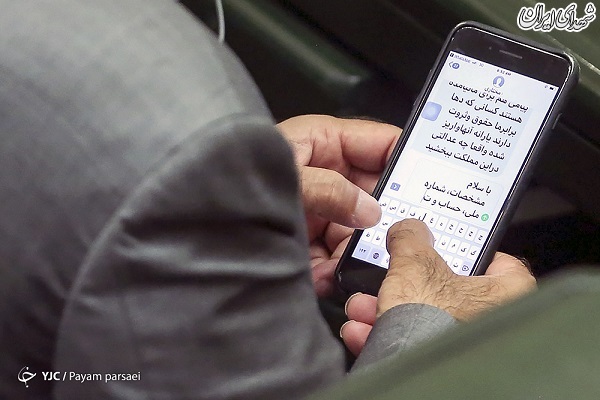 شهدای ایران
مختاری
هستند کسانی که دها
برابرما حقوق وثروت
دارند یارانه آنهاواریز
شده واقعا چه عدالتی
دراین مملکت ببخشید
با سلام
مشخصات، شماره
ملی، حساب و ت
YJC / Payam parsaei